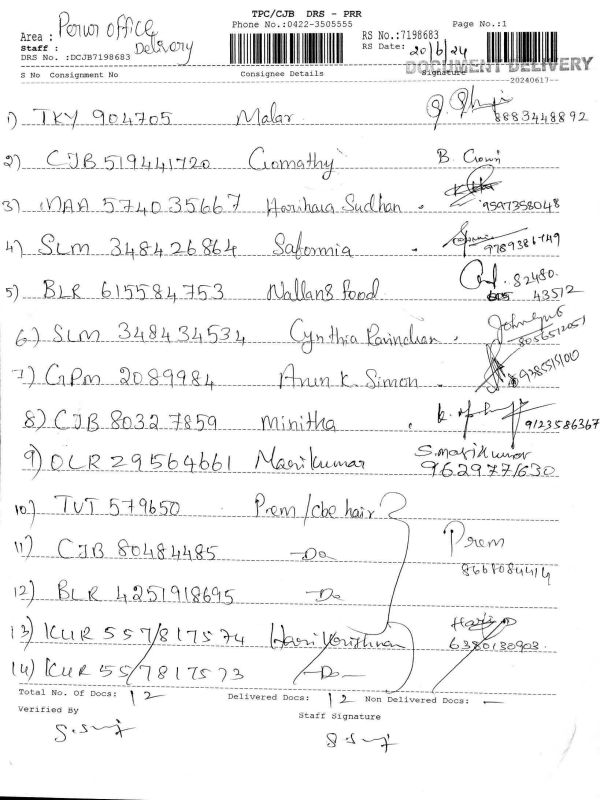 TPC/CJB DRS - PRR
Area : Perur office Phone No.:0422-3505555 Page No.:1
Staff : Delivery RS No.:7198683
DRS No. :DCJB7198683 RS Date: 20/6/24
DOCUMENT DELIVERY
S No Consignment No Consignee Details Signature
20240617
1) TKY 904705 Malar 8883448892
2) CJB 519441720 Gomathy B. Gowri
3) MAA 574035667 Harihara Sudhan. 9597358048
4) SLM 348426864 Saformia. 9789386749
5) BLR 615584753 Nallans Food 82480.
43512
6) SLM 348434534 Cynthia Ravindran. 8056512051
7) GPM 2089984 Arun K. Simon.
8) CJB 80327859 Minitha 9123586367
9) OLR 29564661 Marikumar S.marikumar
9629771630
10) TUT 579650 Prem/cbe hair
11) CJB 80484485 -Do Prem
8668084414
12) BLR 4251918695 -Do
13) KUR 557/817574 Harikrishnan
6380130903.
14) KUR 557817573 -Do-
Total No. Of Docs: 12 Delivered Docs: 12 Non Delivered Docs: -
Verified By Staff Signature